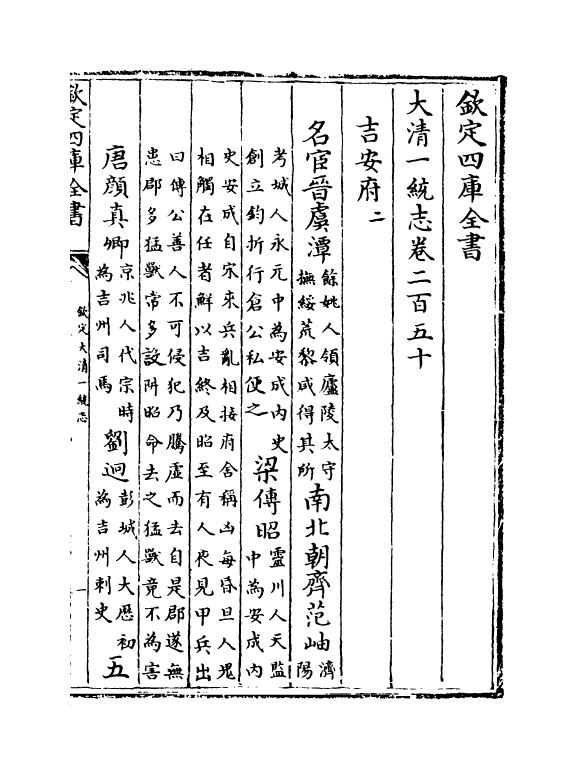 欽定四庫全書
大清一統志卷二百五十
吉安府二
名宦晉虞潭餘姚人領廬陵太守撫綏荒黎咸得其所南北朝齊范岫濟陽
考城人永元中為安成內史創立鈞折行倉公私便之梁傅昭靈川人天監中為安成內
史安成自宋來兵亂相接府舍稱凶每昏旦人鬼相觸在任者鮮以吉終及昭至有人夜見甲兵出
曰傅公善人不可侵犯乃騰虛而去自是郡遂無患郡多猛獸常多設阱昭命去之猛獸竟不為害
唐顏真卿京兆人代宗時為吉州司馬劉迥彭城人大歷初為吉州刺史五
欽定四庫全書
欽定大清一統志
一